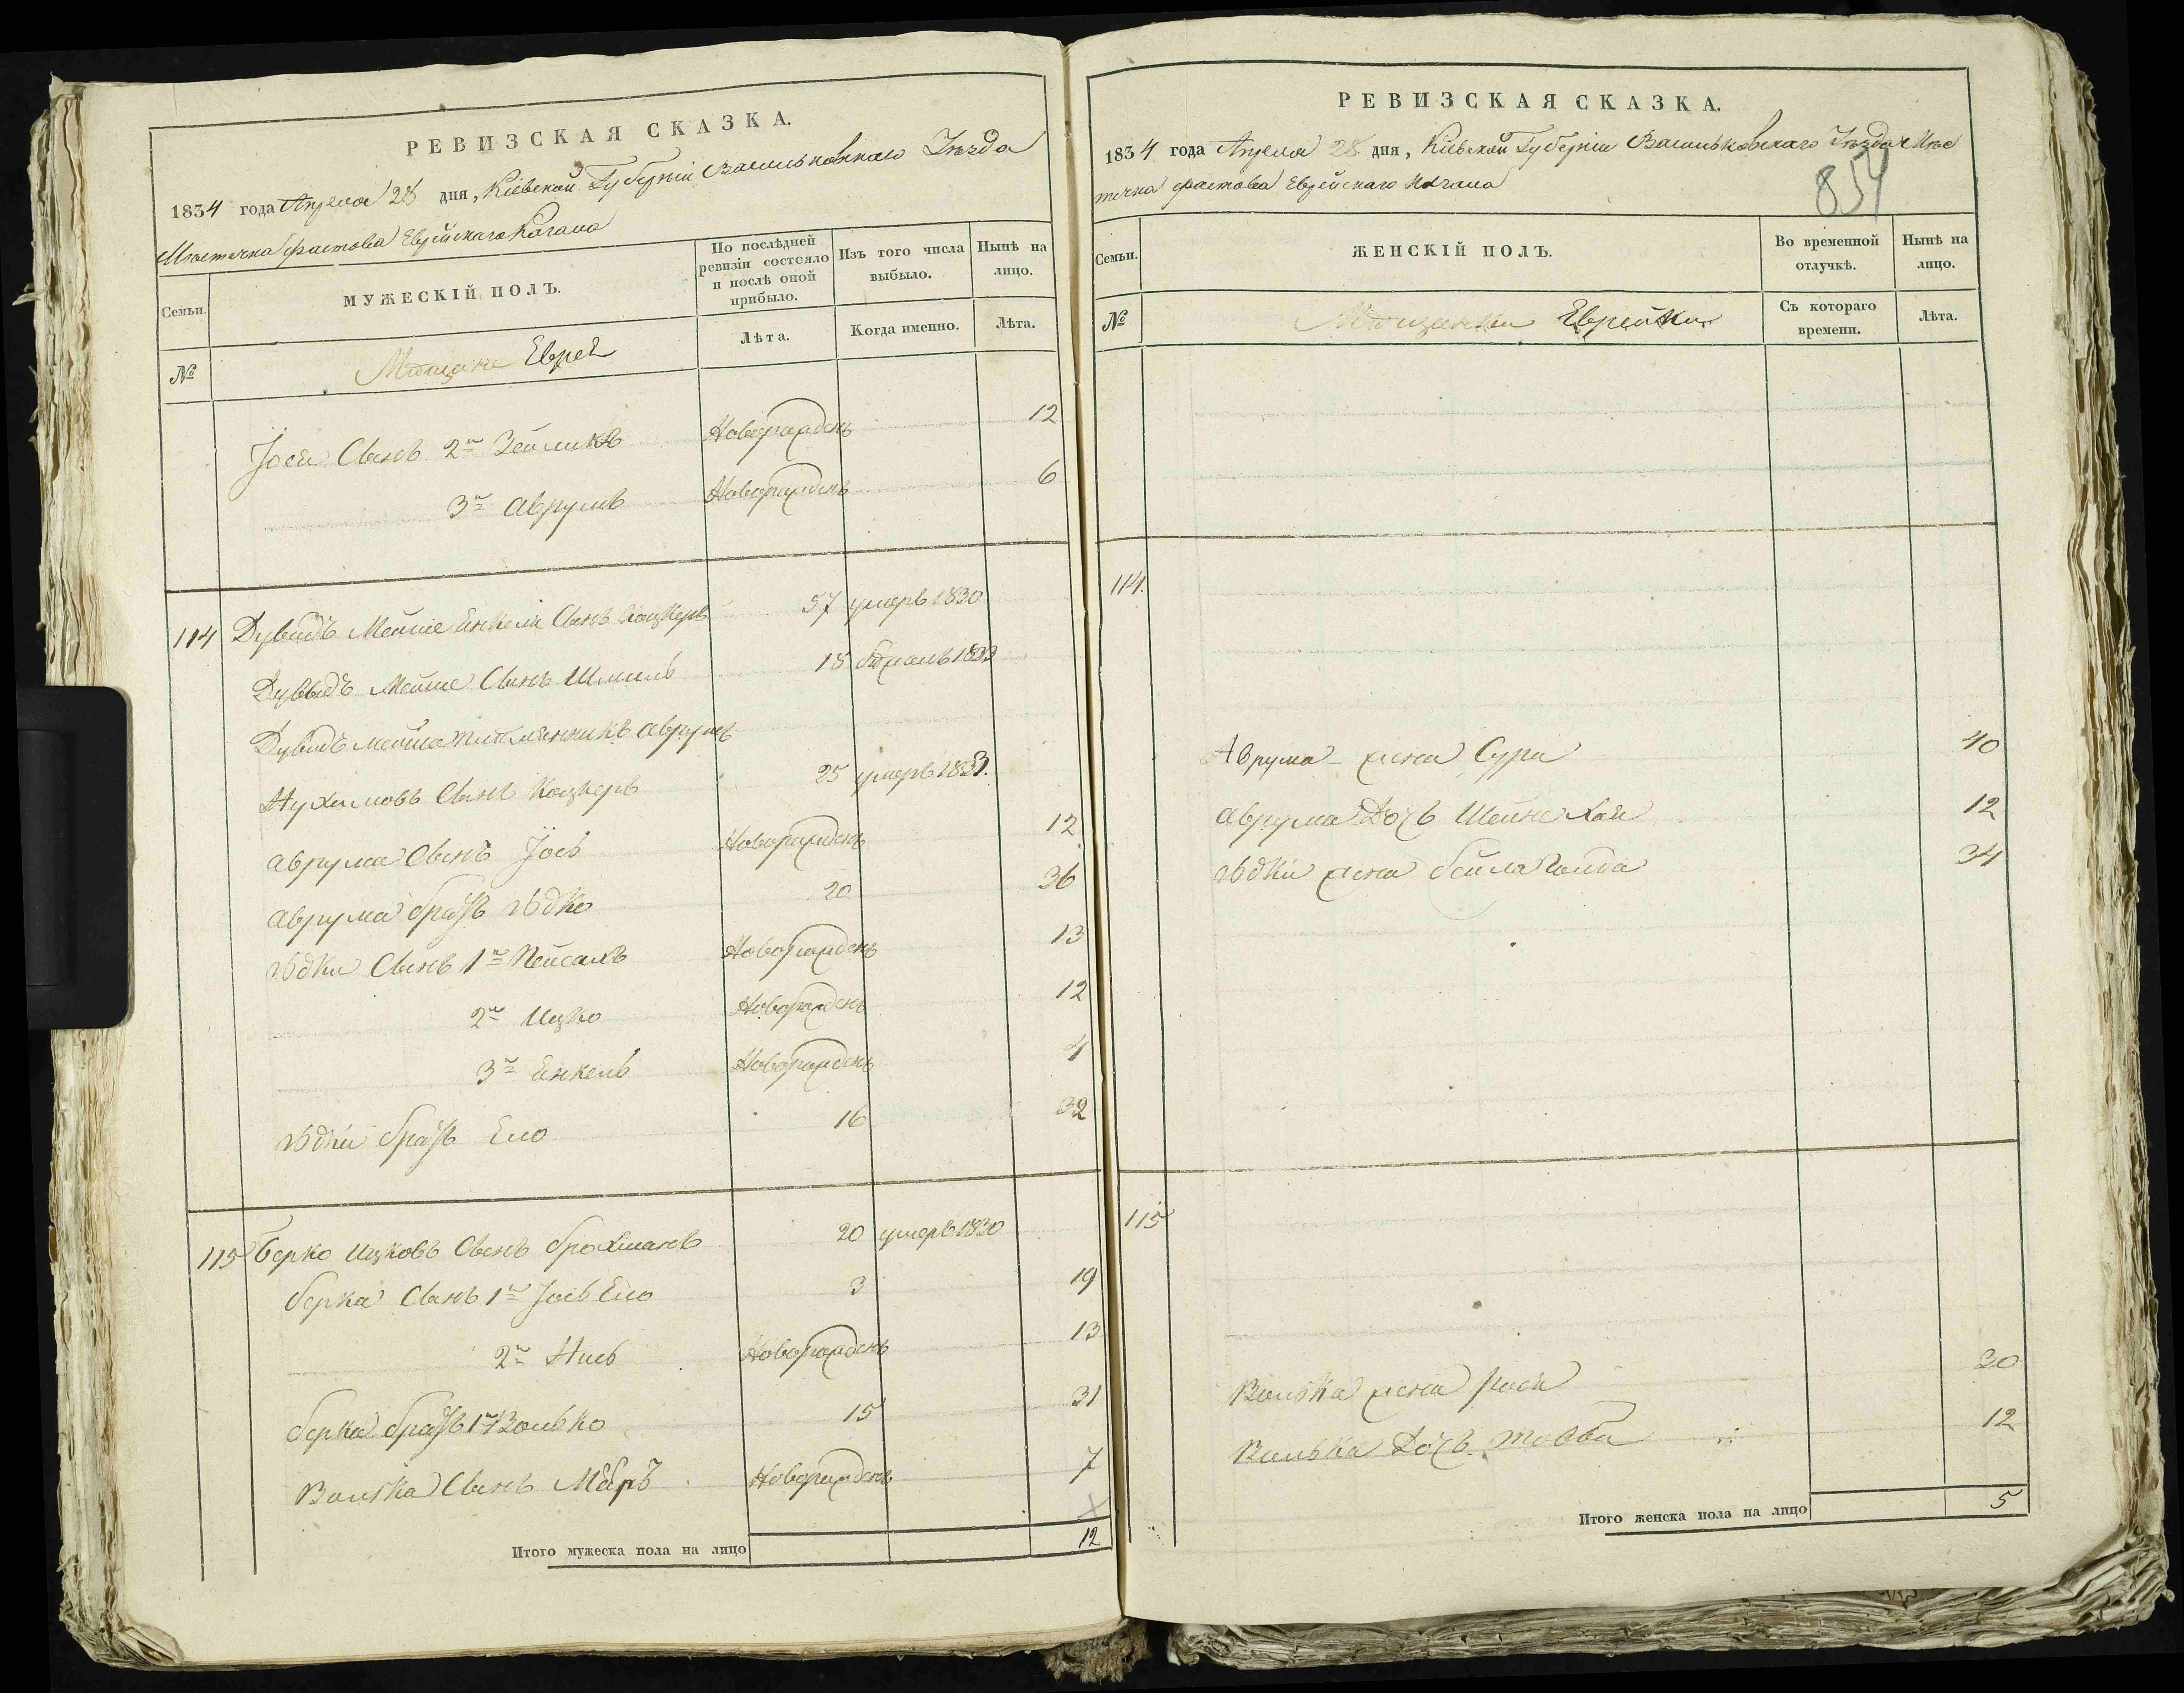 РЕВИЗСКАЯ СКАЗКА.
1834 года Апреля 28 дня, Кіевской Губерніи Васильковскаго Уѣзда
Мѣстечка Фастова Еврейскаго Кагала
Семьи.
МУЖЕСКІЙ ПОЛЪ.
По послѣдней ревизіи состояло и послѣ оной прибыло.
Изъ того числа выбыло.
Нынѣ на лицо.
№
Мѣщане Евреи
Лѣта.
Когда именно.
Лѣта.
Іося Сынъ 2й Зейликъ Новорожденъ 12
3й Аврумъ Новорожденъ 6
114 Дувидъ Мошко Янкеля Сынъ Коцкеръ 57 умеръ 1830
Дувидъ Мошка Сынъ Шмиль 18
Дувидъ Мошка племянникъ Аврумъ
Нухимовъ Сынъ Коцкеръ 25 умеръ 1831.
Аврума Сынъ Іось Новорожденъ 12
Аврума братъ Гѣдко 20 36
Гѣдки Сынъ 1й Пейсахъ Новорожденъ 13
2й Ицко Новорожденъ 12
3й Янкель Новорожденъ 4
Гѣдки братъ Ело 16 32
115 Берко Ицковъ Сынъ 20 умеръ 1830
Берка Сынъ 1й Іось Ело 3 19
2й Нись Новорожденъ 13
Берка братъ 1й Волько 15 31
Волька Сынъ Мееръ Новорожденъ 7
Итого мужеска пола на лицо 12
РЕВИЗСКАЯ СКАЗКА.
1834 года Апреля 28 дня, Кіевской Губерніи Васильковскаго Уѣзда Мѣс
течка Фастова Еврейскаго Кагала
854
Семьи.
ЖЕНСКІЙ ПОЛЪ.
Во временной отлучкѣ.
Нынѣ на лицо.
№
Мѣщанки Еврейки
Съ котораго времени.
Лѣта.
114.
Аврума жена Сура 40
Аврума Дочь Шейна Хая 12
Гѣдки жена Бейла Голда 34
115
Волька жена Рося 30
Волька Дочь Товба 12
Итого женска пола на лицо 5